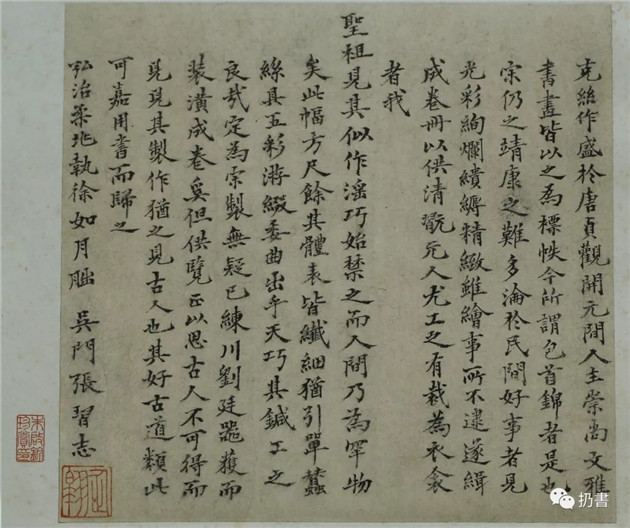 克絲作盛於唐貞觀開元間人主崇尚文雅
書畫皆以之為標帙今所謂包首錦者是也
宋仍之靖康之難多淪於民間好事者見
光彩絢爛繢縟精緻雖繪事所不逮遂緝
成卷冊以供清翫元人尤工之有裁為衣衾
者我
聖祖見其似作淫巧始禁之而人間乃為罕物
矣此幅方尺餘其體表皆纖細猶引單蠶
絲其五彩游綴委曲出乎天巧其鍼工之
良哉定為宋製無疑已練川劉廷器獲而
裝潢成卷奚但供覽正以思古人不可得而
見見其製作猶之見古人也其好古道類此
可嘉用書而歸之
弘治柔兆執徐如月朏 吳門張習志
扔書